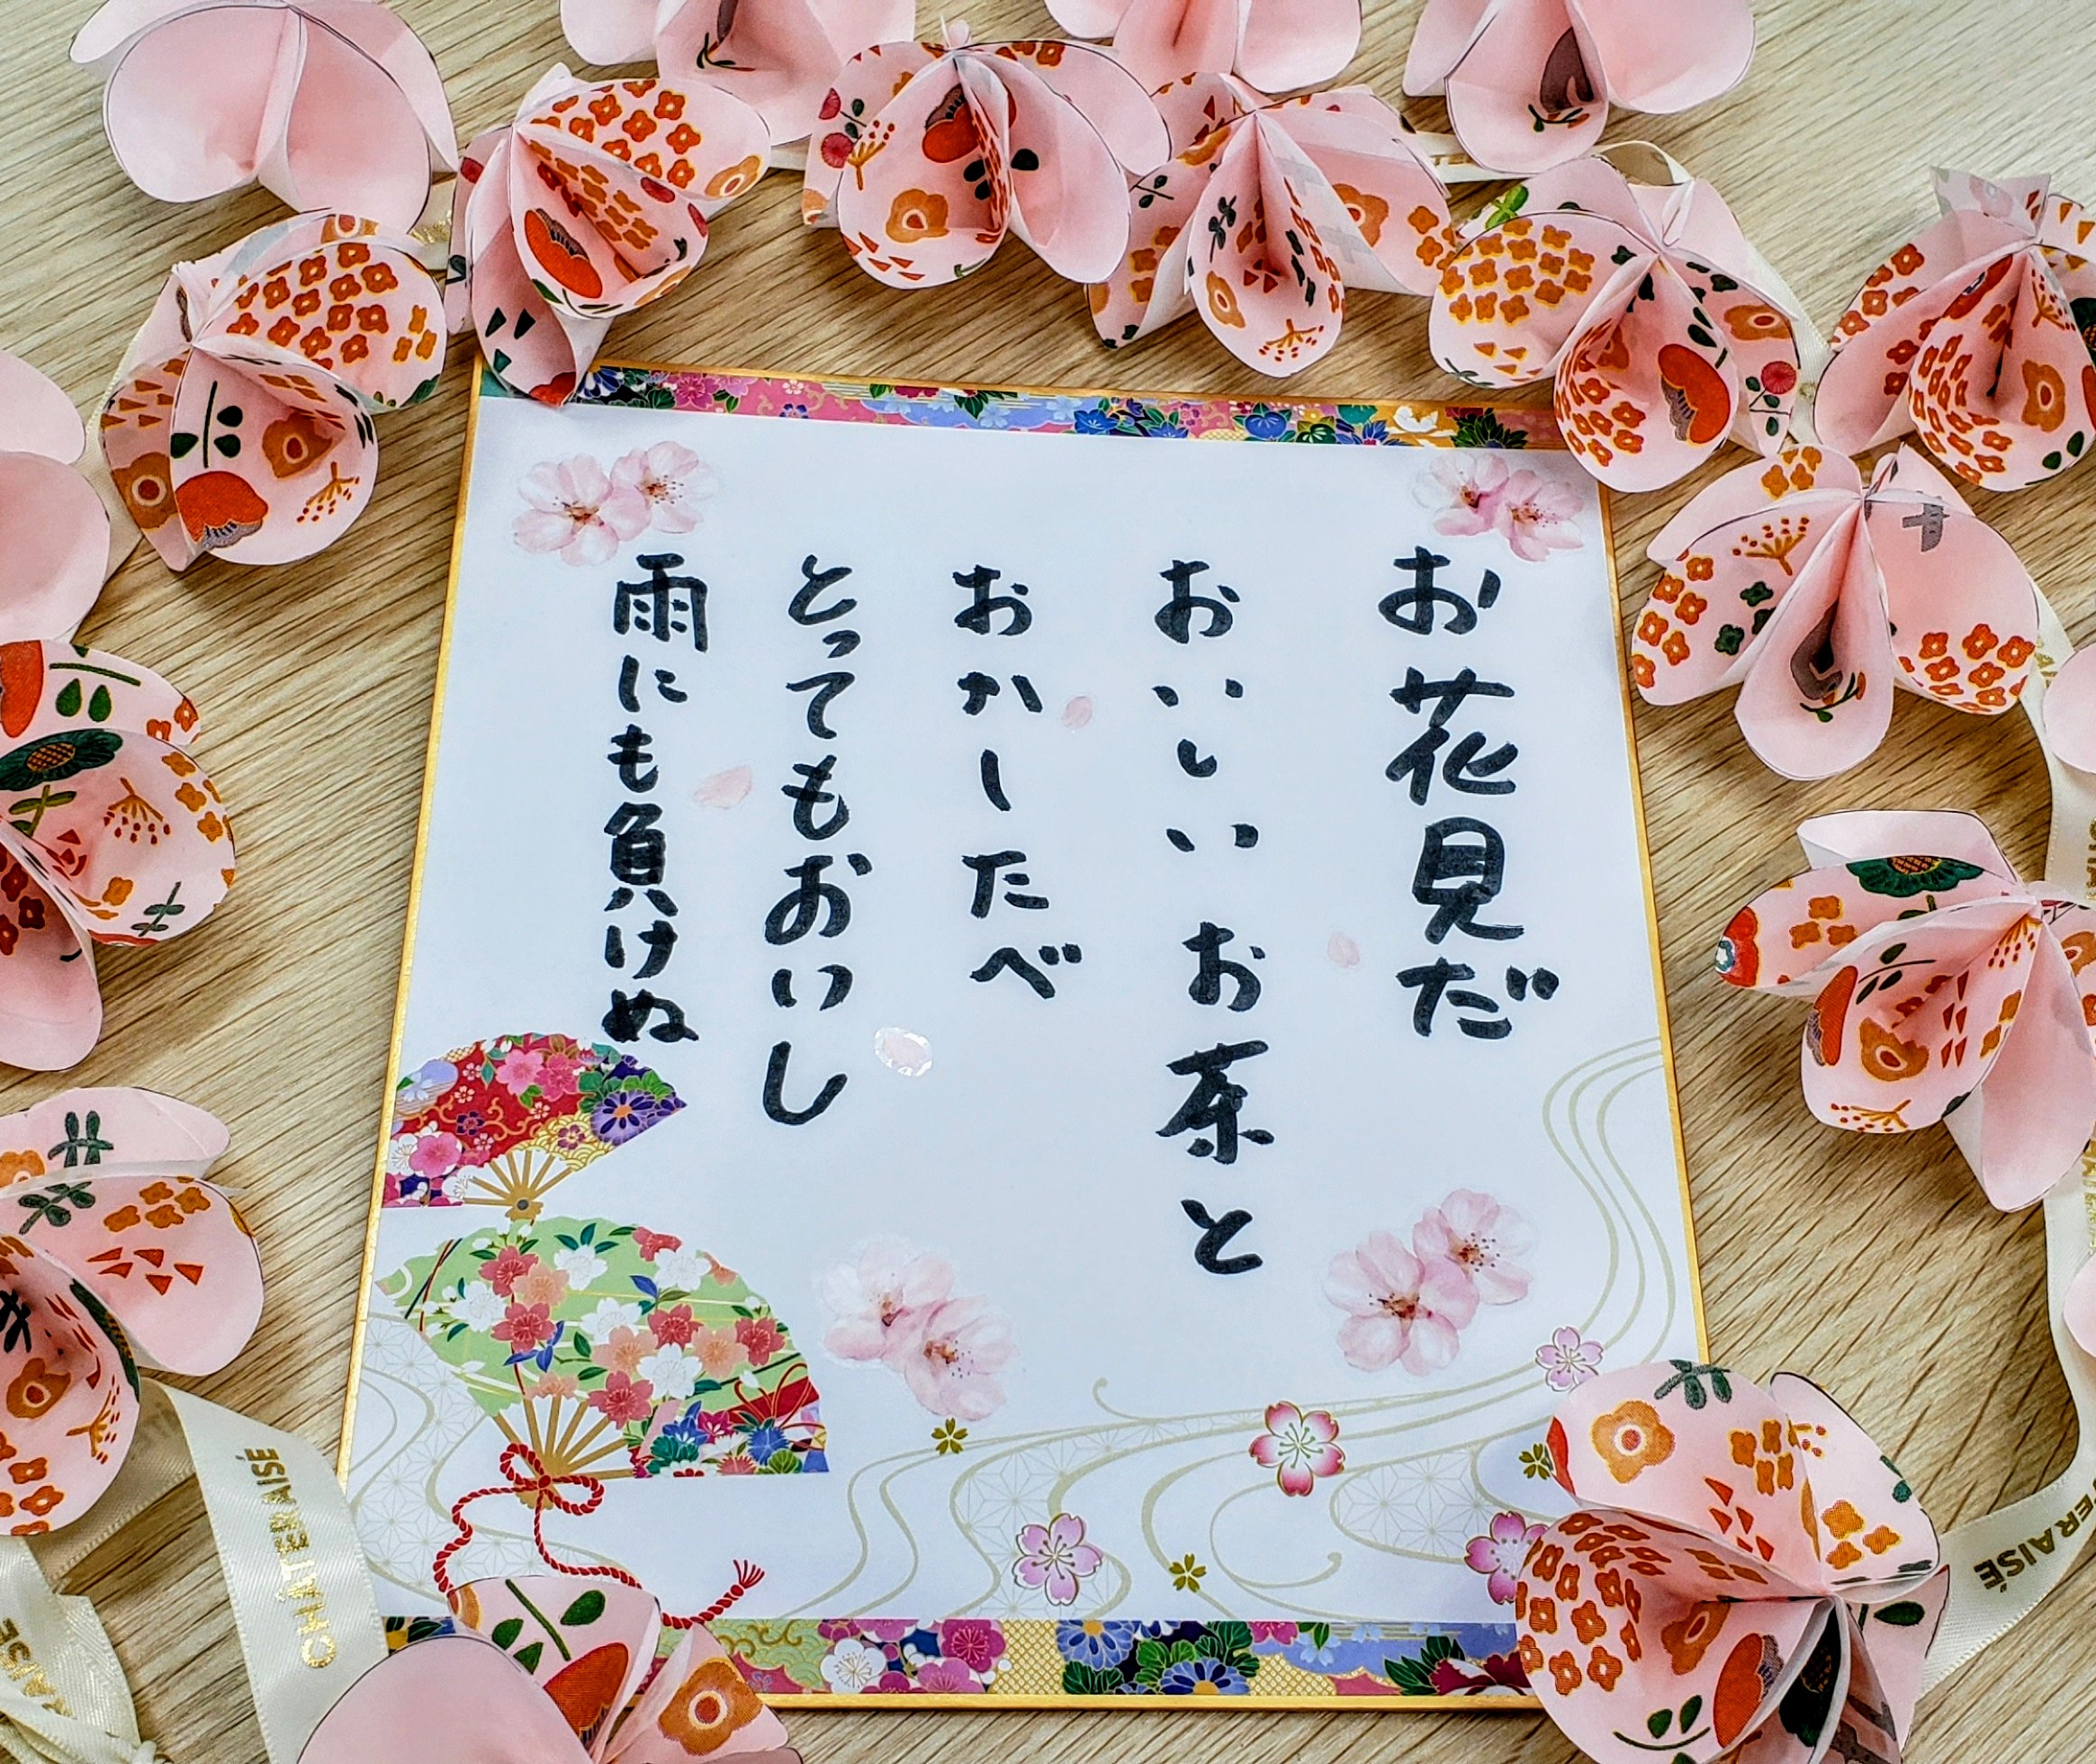 お花見だ
おいしいお茶と
おかしたべ
とってもおいし
雨にも負けぬ
CHÂTERAISÉ